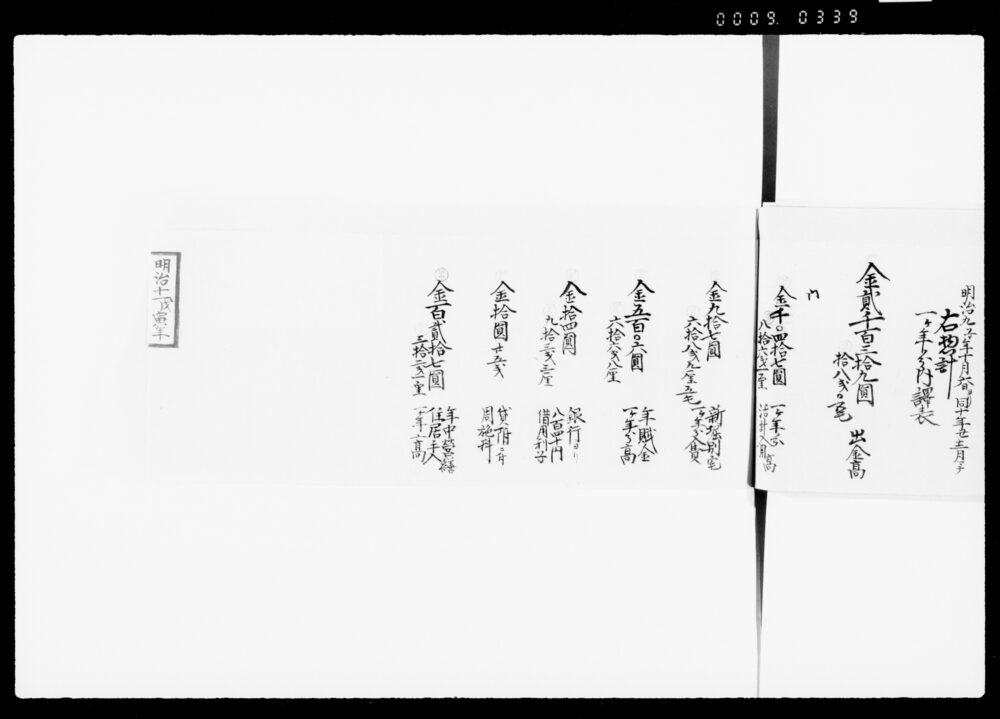 0009.0339
明治九子年十月ゟ同十年丑十二月マテ
右惣計
一ヶ年分内譯表
金貳千百三拾九圓
拾八戋〇毛
出金高
内
金千〇四拾七圓
八拾六戋一厘
一ヶ年分
諸井入用高
金九拾七圓
六拾八戋九厘五毛
新堀別宅
一ヶ年分入費
金五百〇六圓
六拾六戋八厘
年賦金
一ヶ年分高
金拾四圓
九拾三戋三厘
銀行ヨリ
八百四十円
借用利子
金拾圓
廿五戋
貸附ニ付
周施料
金百貳拾七圓
三拾三戋一厘
年中營繕
住居手入
一ヶ年ノ高
明治十一戊寅年